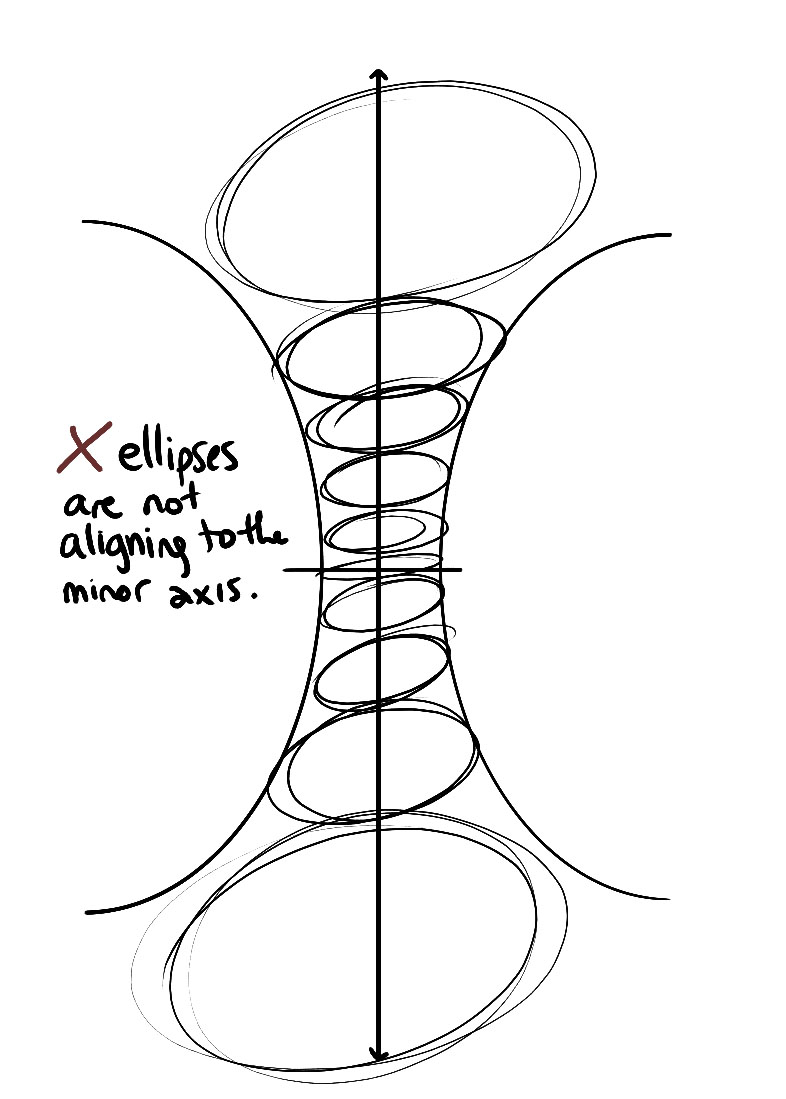 X ellipses
are not
aligning to the
minor axis.